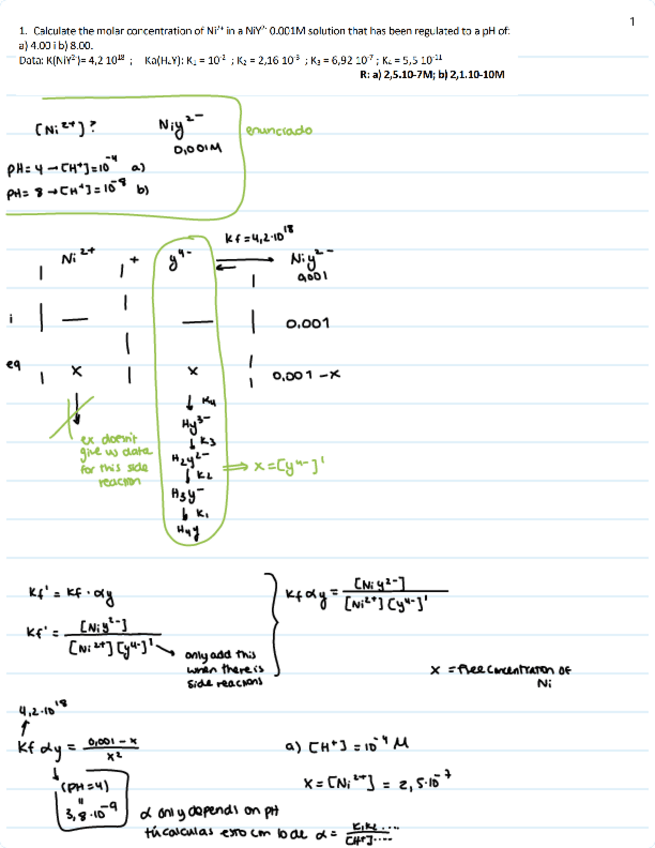 1
1. Calculate the molar concentration of Ni²⁺ in a NiY²⁻ 0.001M solution that has been regulated to a pH of:
a) 4.00 i b) 8.00.
Data: K(NiY²⁻)= 4,2 10¹⁸ ; Ka(H₄Y): K₁ = 10⁻² ; K₂ = 2,16 10⁻³ ; K₃ = 6,92 10⁻⁷ ; K₄ = 5,5 10⁻¹¹
R: a) 2,5.10-7M; b) 2,1.10-10M
[Ni²⁺]? Niy²⁻ enunciado
0,001M
pH= 4 → [H⁺]=10⁻⁴ a)
pH= 8 → [H⁺]=10⁻⁸ b)
Kf=4,2·10¹⁸
Ni²⁺ + y⁴⁻ ⇌ Niy²⁻
0,001
i — — 0.001
eq x x 0,001-x
↓ K4
Hy³⁻
↓ K3
H2y²⁻
↓ K2
H3y⁻
↓ K1
H4y
ex doesn't
give us data
for this side
reaction
⇒ x=[y⁴⁻]'
Kf' = Kf · αy
Kf' = [Niy²⁻] / [Ni²⁺][y⁴⁻]'
only add this
when there is
side reactions
Kf αy = [Niy²⁻] / [Ni²⁺][y⁴⁻]'
x = free concentration of
Ni
4,2·10¹⁸
↑
Kf αy = 0,001-x / x²
↓
(pH=4)
"
3,8·10⁻⁹
a) [H⁺] = 10⁻⁴ M
x = [Ni²⁺] = 2,5·10⁻⁷
α only depends on pH
tú calculas esto con lo de α = K1K2.... / [H⁺]....